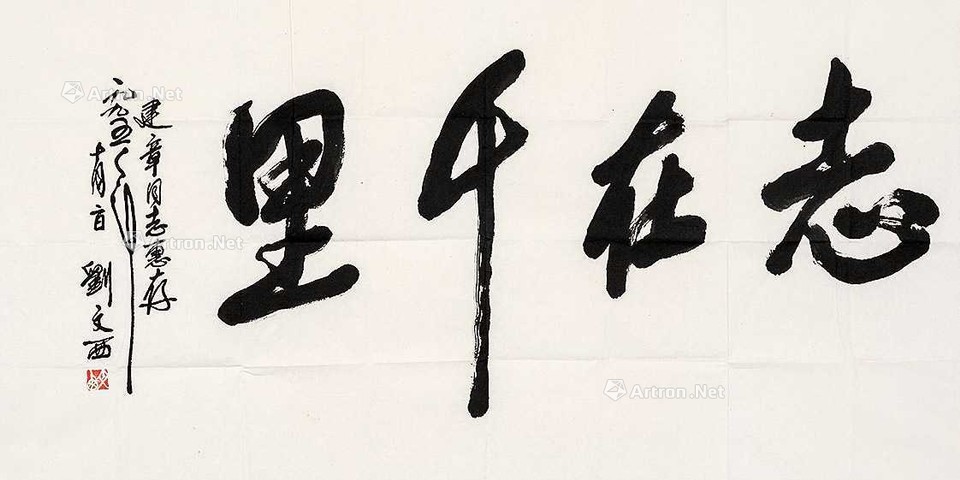 志在千里
建章同志惠存
一九九五年
十月一日 劉文西
Artron.Net
Artron.Net
Artron.Net